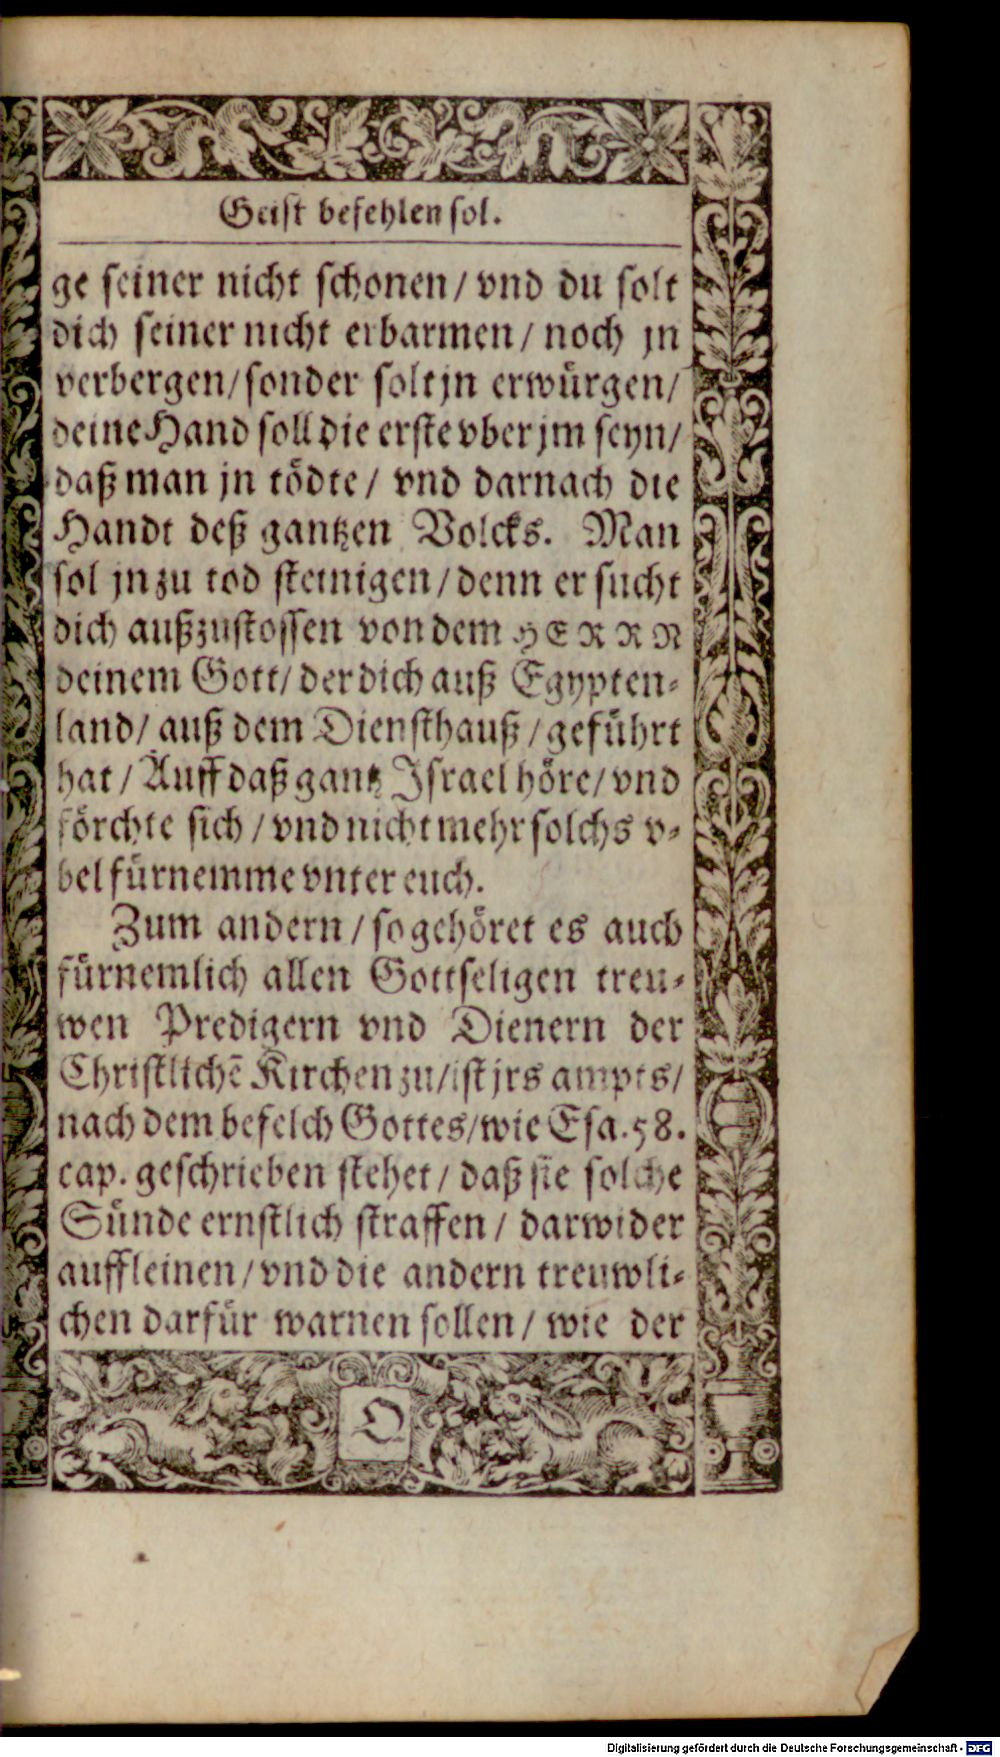 Geist befehlen sol.
ge seiner nicht schonen / vnd du solt
dich seiner nicht erbarmen / noch jn
verbergen / sonder solt jn erwürgen /
deine Hand soll die erste vber jm seyn /
daß man jn tödte / vnd darnach die
Handt deß gantzen Volcks. Man
sol jn zu tod steinigen / denn er sucht
dich außzustossen von dem HERRN
deinem Gott / der dich auß Egypten-
land / auß dem Diensthauß / geführt
hat / Auff daß gantz Israel höre / vnd
förchte sich / vnd nicht mehr solchs v-
bel fürnemme vnter euch.
Zum andern / so gehöret es auch
fürnemlich allen Gottseligen treu-
wen Predigern vnd Dienern der
Christlichē Kirchen zu / ist jrs ampts /
nach dem befelch Gottes / wie Esa. 58.
cap. geschrieben stehet / daß sie solche
Sünde ernstlich straffen / darwider
auffleinen / vnd die andern treuwli-
chen darfür warnen sollen / wie der
Digitalisierung gefördert durch die Deutsche Forschungsgemeinschaft - DFG